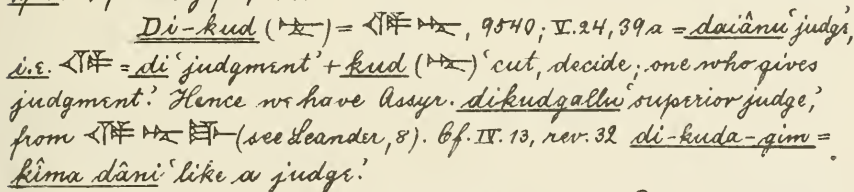 Di-kud (𒋻) = 𒁲 𒋻, 9540; V. 24, 39a = daiânu ‘judge’,
i.e. 𒁲 = di ‘judgment’ + kud (𒋻) ‘cut, decide; one who gives
judgment.’ Hence we have Assyr. dikudgallu ‘superior judge,’
from 𒁲 𒋻 𒃲 (see Leander, 8). Cf. IV. 13, rev. 32 di-kuda-gim =
kîma dâni ‘like a judge.’